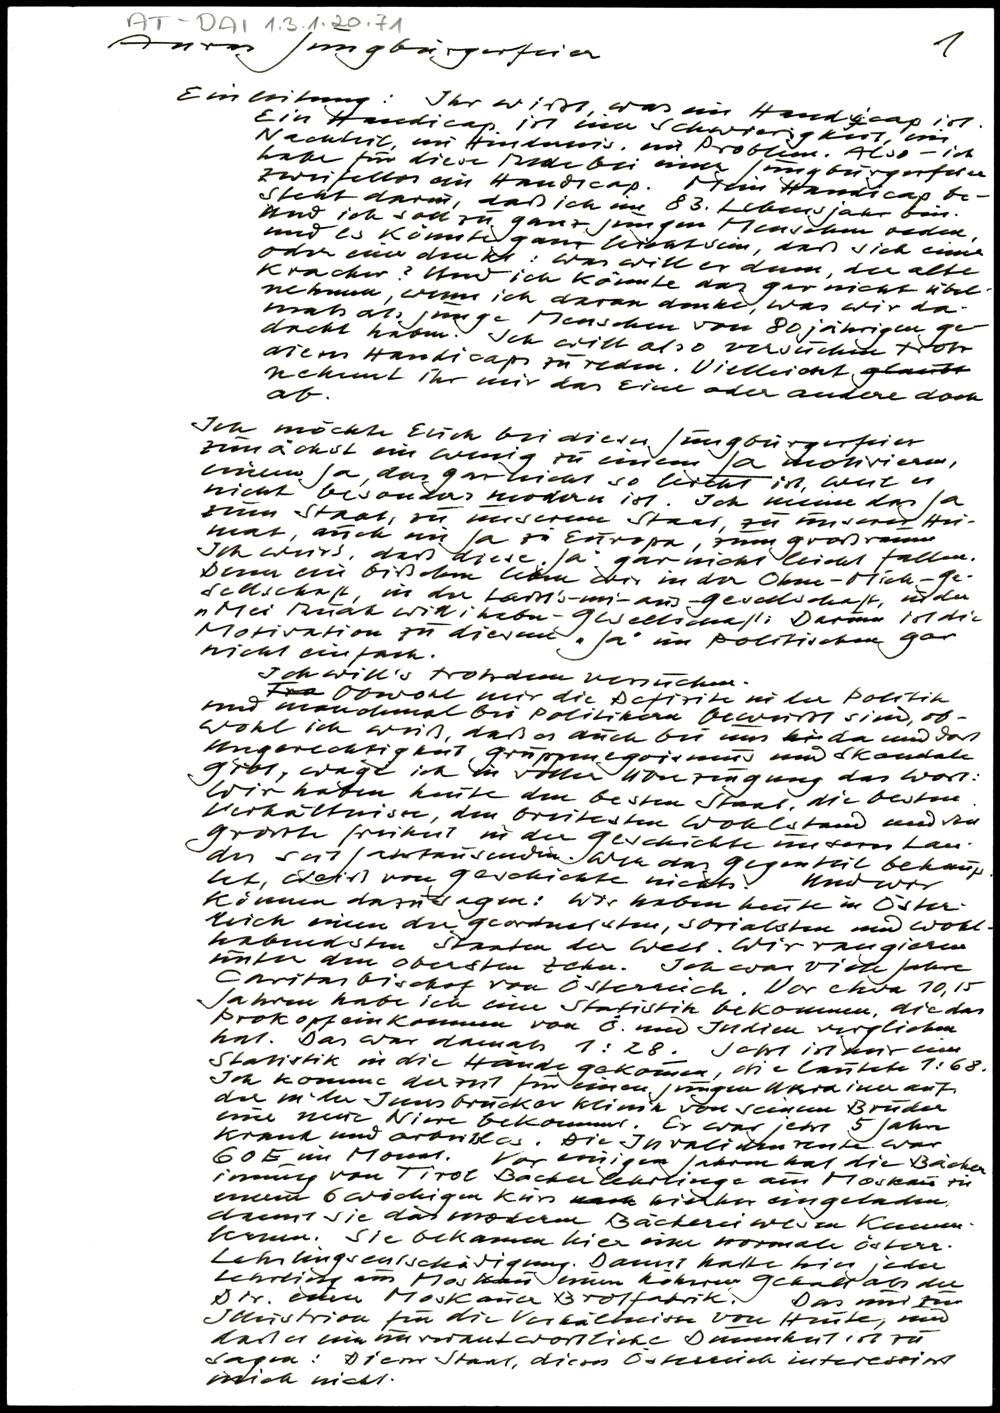 AT-DAI 1.3.1.20.71
Jungbürgerfeier 1
Einleitung: Ihr wißt, was ein Handicap ist.
Ein Handicap ist eine Schwierigkeit, ein
Nachteil, ein Hindernis, ein Problem. Also – ich
habe für diese Rede bei einer Jungbürgerfeier
zweifellos ein Handicap. Mein Handicap be-
steht darin, daß ich im 83. Lebensjahr bin.
Und ich soll zu ganz jungen Menschen reden,
und es könnte ganz leicht sein, daß sich einer
oder eine denkt: was will er denn, der alte
Kracher? Und ich könnte das gar nicht übel-
nehmen, wenn ich daran denke, was wir da-
mals als junge Menschen von 80jährigen ge-
dacht haben. Ich will also versuchen trotz
dieses Handicaps zu reden. Vielleicht glaubt
nehmt ihr mir das Eine oder andere doch
ab.
Ich möchte Euch bei dieser Jungbürgerfeier
zunächst ein wenig zu einem Ja motivieren,
einem Ja, das gar nicht so leicht ist, weil es
nicht besonders modern ist. Ich meine das Ja
zum Staat, zu unserem Staat, zu unserer Hei-
mat, auch ein Ja zu Europa, zum Großraum
Ich weiß, daß diese "Ja" gar nicht leicht fallen.
Denn ein bißchen leben wir in der Ohne-Mich-Ge-
sellschaft, in der Laßt's-mi-aus-Gesellschaft, in der
"Mei Ruah will i habn-Gesellschaft". Darum ist die
Motivation zu diesem "Ja" im Politischen gar
nicht einfach.
Ich will's trotzdem versuchen.
Obwohl mir die Defizite in der Politik
und manchmal bei Politikern bewußt sind, ob-
wohl ich weiß, daß es auch bei uns da und dort
Ungerechtigkeit, Gruppenegoismus und Skandale
gibt, wage ich in voller Überzeugung das Wort:
Wir haben heute den besten Staat, die besten
Verhältnisse, den breitesten Wohlstand und die
größte Freiheit in der Geschichte unseres Lan-
des seit Jahrtausenden. Wer das Gegenteil behaup-
tet, weiß von Geschichte nichts. Und wir
können dazusagen: Wir haben heute in Öster-
reich einen der geordnetsten, sozialsten und wohl-
habendsten Staaten der Welt. Wir rangieren
unter den obersten Zehn. Ich war viele Jahre
Caritasbischof von Österreich. Vor etwa 10, 15
Jahren habe ich eine Statistik bekommen, die das
Prokopfeinkommen von Ö. und Indien verglichen
hat. Das war damals 1:28. Jetzt ist mir eine
Statistik in die Hände gekommen, die lautete 1:68.
Ich komme derzeit für einen jungen Ukrainer auf,
der in der Innsbrucker Klinik von seinem Bruder
eine neue Niere bekommt. Er war jetzt 5 Jahre
krank und arbeitslos. Die Invalidenrente war
60 im Monat. Vor einigen Jahren hat die Bäcker
innung von Tirol Bäckerlehrlinge aus Moskau zu
einem 6wöchigen Kurs hieher eingeladen,
damit sie das moderne Bäckereiwesen kennen-
lernen. Sie bekamen hier eine normale österr.
Lehrlingsentschädigung. Damit hatte hier jeder
Lehrling aus Moskau einen höheren Gehalt als der
Dir. einer Moskauer Brotfabrik. Das nur zur
Illustrion für die Verhältnisse von Heute, und
daß es eine unverantwortliche Dummheit ist zu
sagen: Dieser Staat, dieses Österreich interessiert
mich nicht.